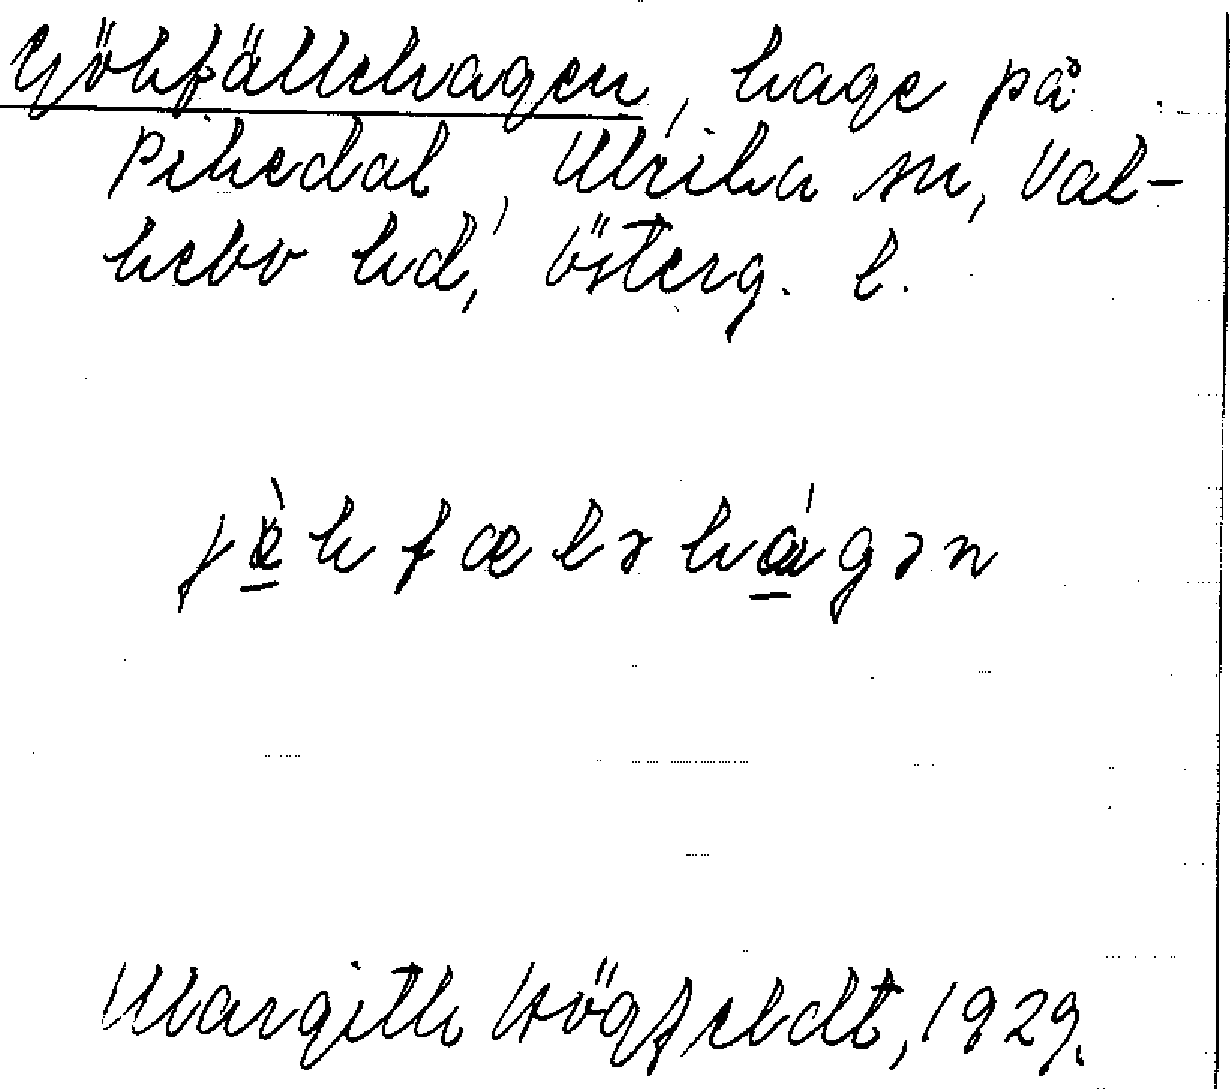 Gökfällehagen, hage på
Pikedal, Ulrika sn, Val-
kebo hd, Österg. l.
jø̀kfæləhágən
Margith Högfeldt, 1929.